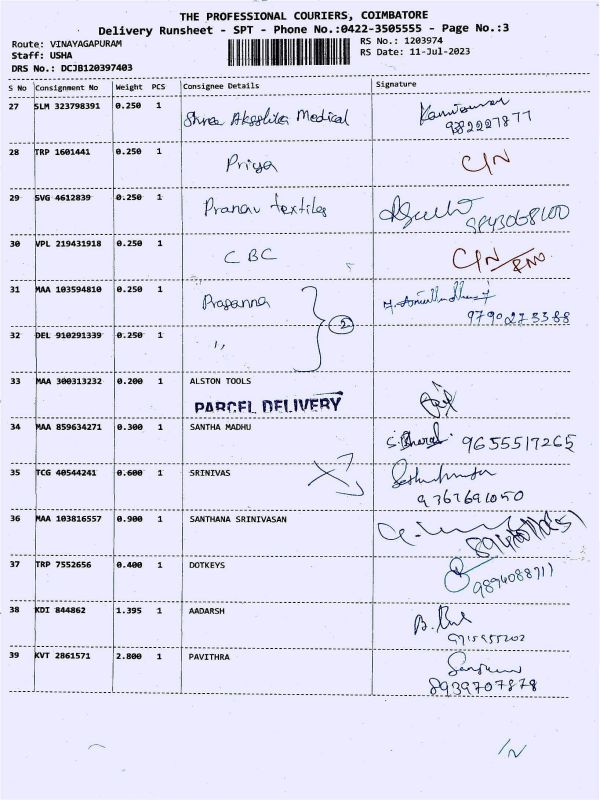 THE PROFESSIONAL COURIERS, COIMBATORE
Delivery Runsheet - SPT - Phone No.:0422-3505555 - Page No.:3
Route: VINAYAGAPURAM RS No.: 1203974
Staff: USHA RS Date: 11-Jul-2023
DRS No.: DCJB120397403
S No Consignment No Weight PCS Consignee Details Signature
27 SLM 323798391 0.250 1 Shree Medical
982227877
28 TRP 1601441 0.250 1 Priya C/N
29 SVG 4612839 0.250 1 Pranav textiles
30 VPL 219431918 0.250 1 CBC C/N
31 MAA 103594810 0.250 1 Prasanna
9790273388
32 DEL 910291339 0.250 1 " 2
33 MAA 300313232 0.200 1 ALSTON TOOLS
PARCEL DELIVERY
34 MAA 859634271 0.300 1 SANTHA MADHU S. Bharat 9655517265
35 TCG 40544241 0.600 1 SRINIVAS
9367691050
36 MAA 103816557 0.900 1 SANTHANA SRINIVASAN
37 TRP 7552656 0.400 1 DOTKEYS
9894088911
38 KDI 844862 1.395 1 AADARSH
39 KVT 2861571 2.800 1 PAVITHRA
8939707878